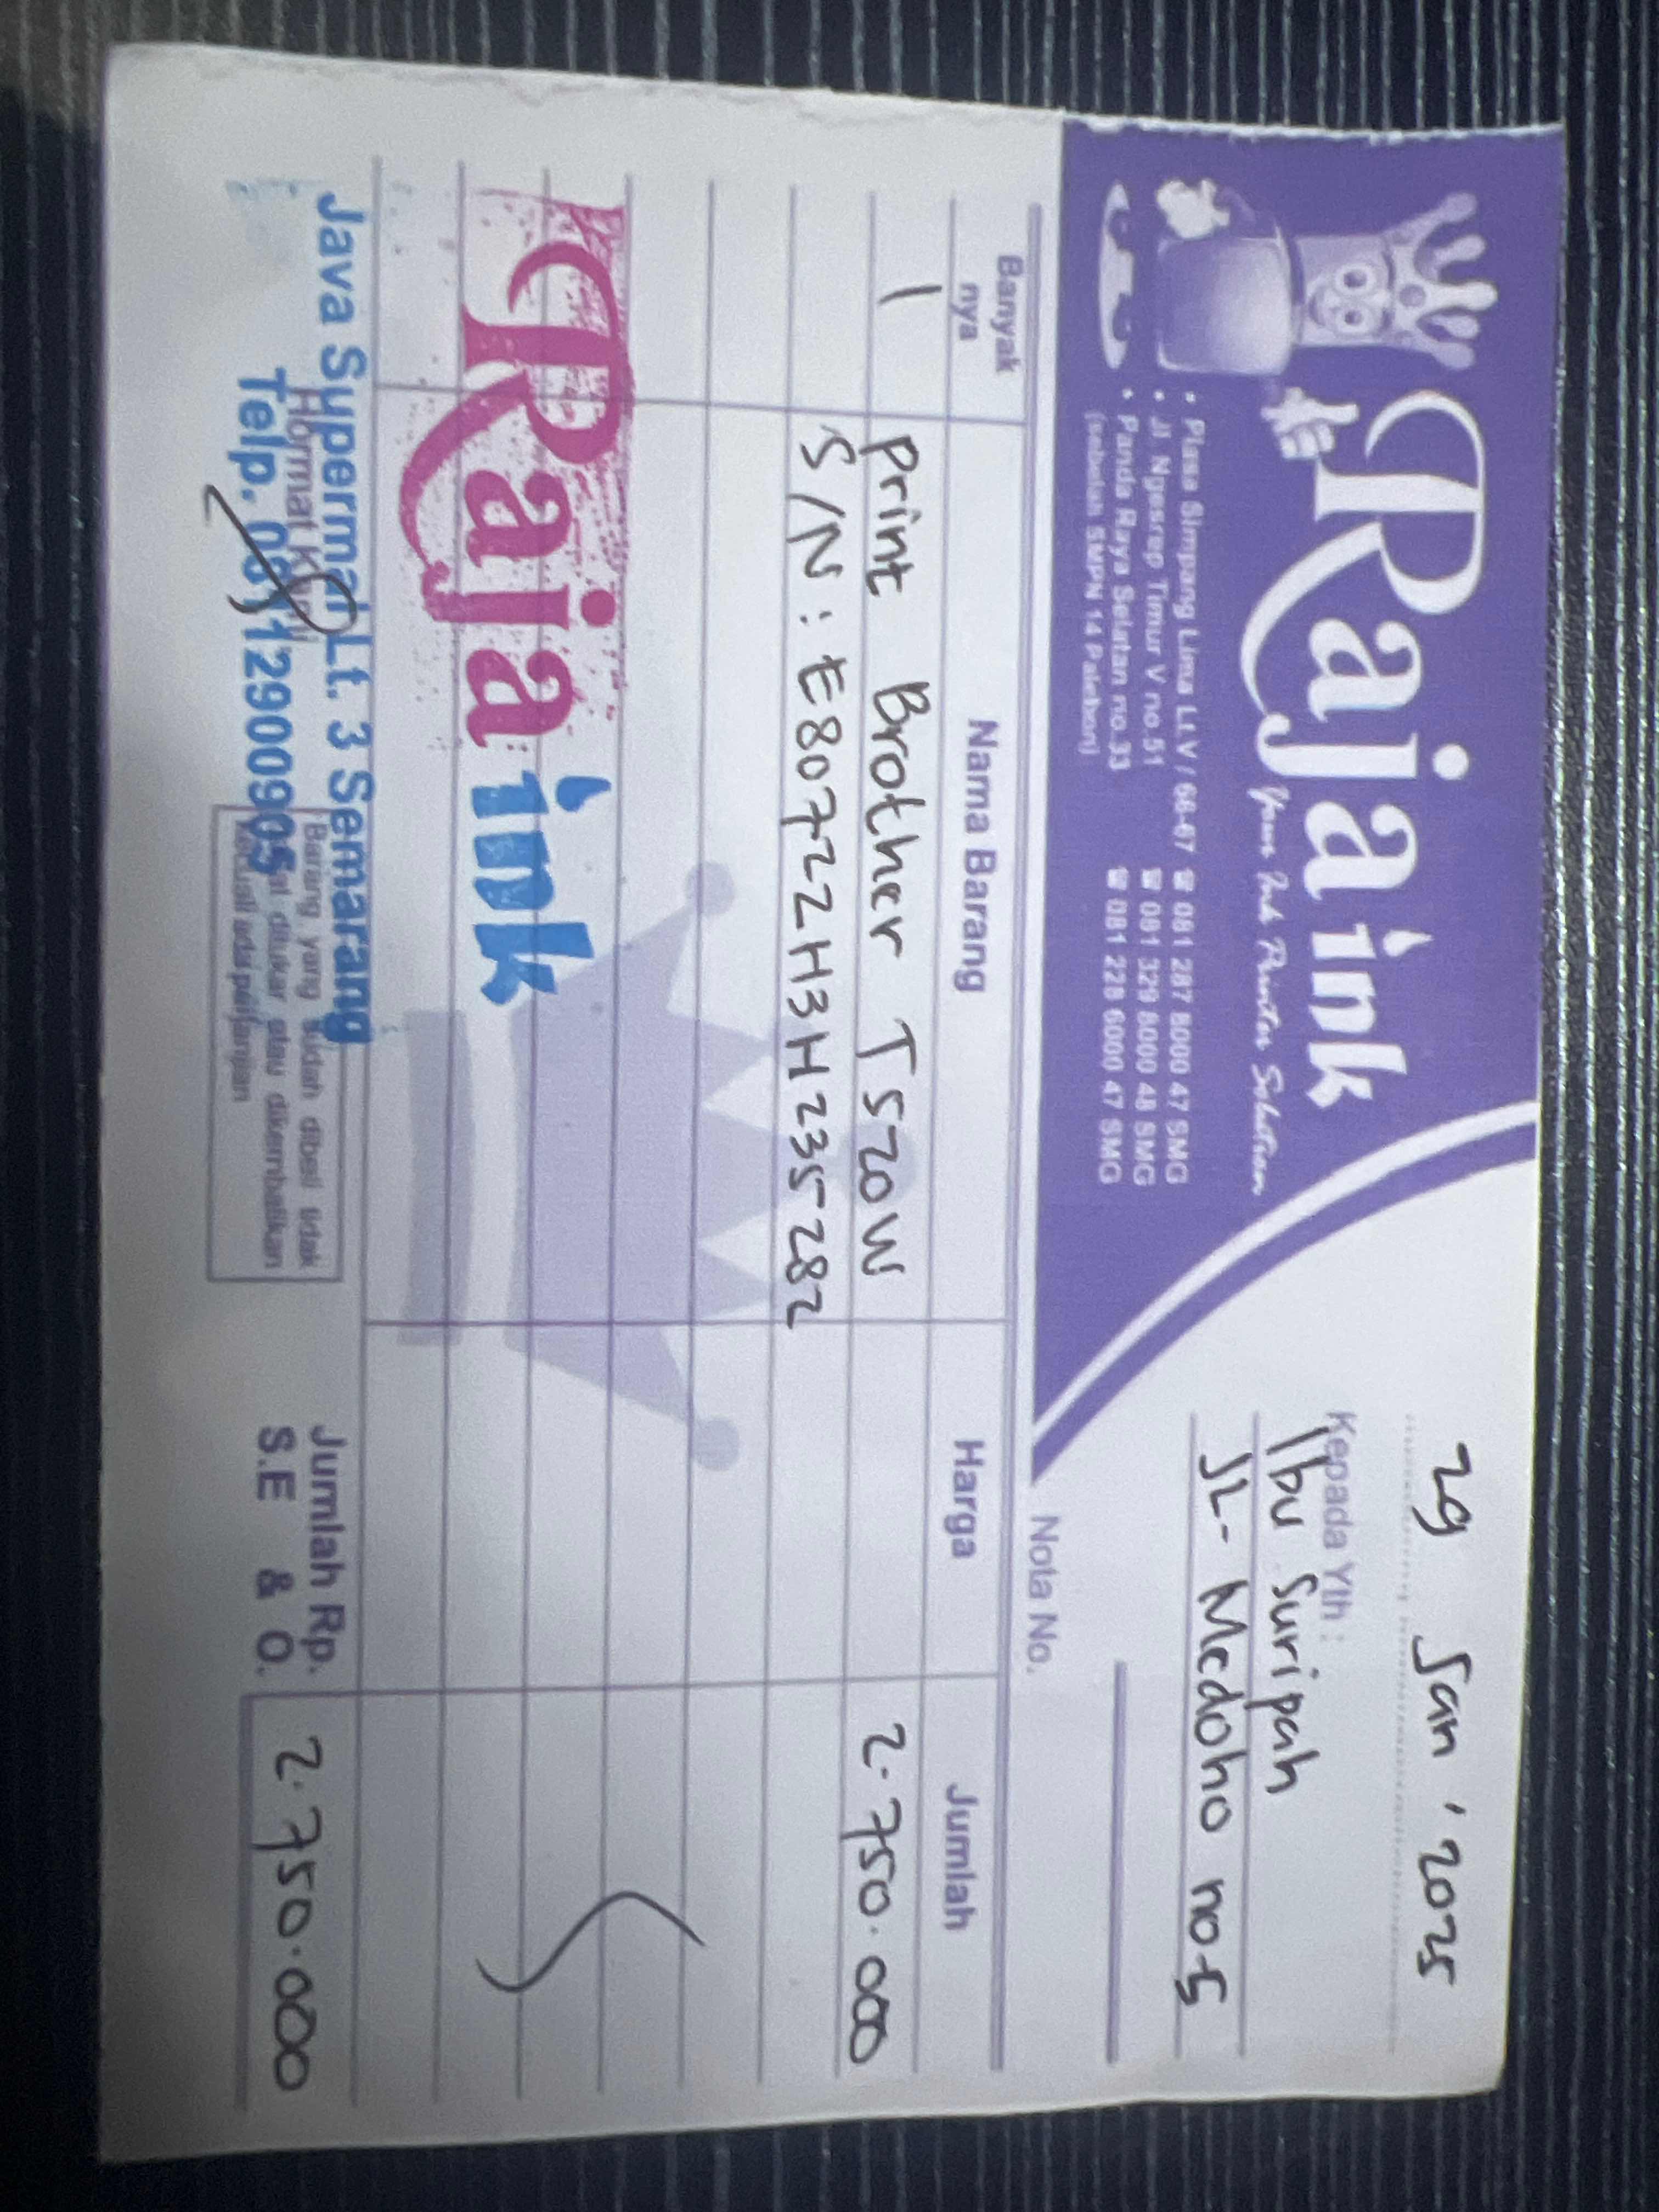 Raja ink
Your Ink Printer Solution
• Plasa Simpang Lima Lt. V / 66-67 ☎ 081 287 8000 47 SMG
• Jl Ngesrep Timur V no.51 ☎ 081 329 8000 48 SMG
• Panda Raya Selatan no.33 ☎ 081 228 6000 47 SMG
(sebelah SMPN 14 Palebon)
29 Jan, 2025
Kepada Yth :
Ibu Suripah
JL. Medoho no.5
Nota No.
Banyak nya Nama Barang Harga Jumlah
1 Print Brother T520W 2.750.000
S/N : E80722H3H235282
Raja ink
Java Supermall Lt. 3 Semarang
Hormat Kami
Telp. 085129000905
Barang yang sudah dibeli tidak
ditukar atau dikembalikan
kecuali ada perjanjian
Jumlah Rp. 2.750.000
S.E & O.